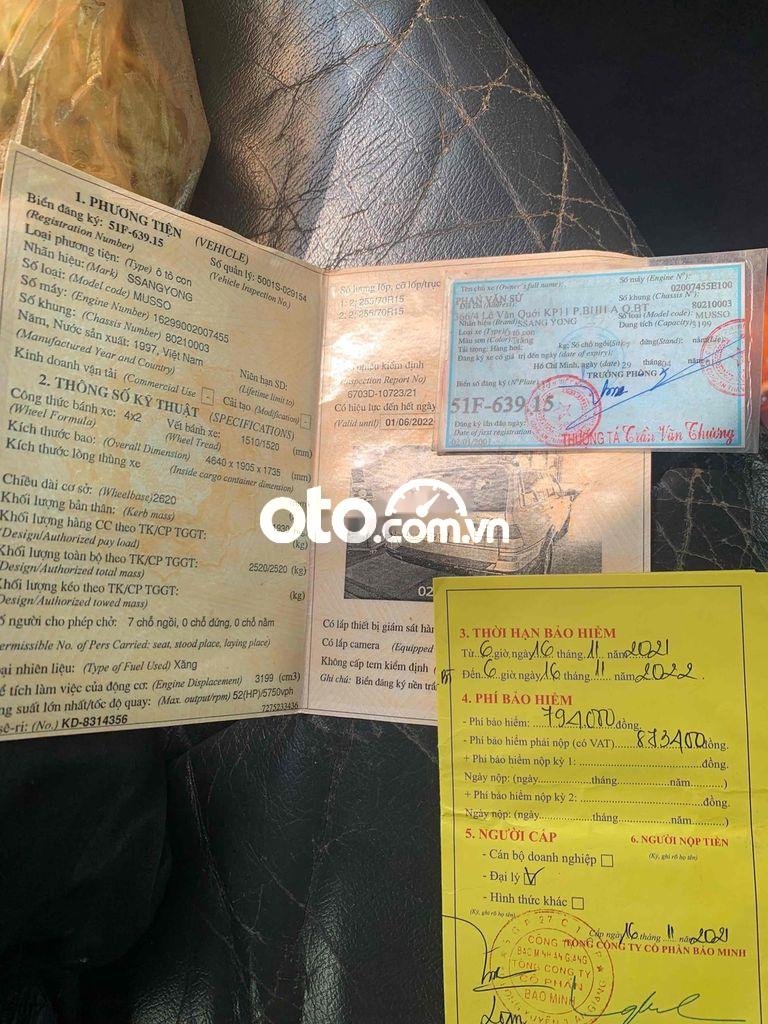 1. PHƯƠNG TIỆN (VEHICLE)
Biển đăng ký: 51F-639.15
(Registration Number)
Số quản lý: 5001S-029154
(Vehicle Inspection No.)
Loại phương tiện: (Type) ô tô con
Nhãn hiệu: (Mark) SSANGYONG
Số loại: (Model code) MUSSO
Số máy: (Engine Number) 16299002007455
Số khung: (Chassis Number) 80210003
Năm, Nước sản xuất: 1997, Việt Nam
(Manufactured Year and Country)
Niên hạn SD:
(Lifetime limit to)
Kinh doanh vận tải (Commercial Use) -
Cải tạo (Modification) -
2. THÔNG SỐ KỸ THUẬT (SPECIFICATIONS)
Công thức bánh xe: 4x2
(Wheel Formula)
Vết bánh xe: 1510/1520 (mm)
(Wheel Tread)
Kích thước bao: (Overall Dimension) 4640 x 1905 x 1735 (mm)
Kích thước lòng thùng xe
(Inside cargo container dimension) (mm)
Chiều dài cơ sở: (Wheelbase) 2620
Khối lượng bản thân: (Kerb mass) (kg)
Khối lượng hàng CC theo TK/CP TGGT: (kg)
Design/Authorized pay load)
Khối lượng toàn bộ theo TK/CP TGGT: 2520/2520 (kg)
Design/Authorized total mass)
Khối lượng kéo theo TK/CP TGGT: (kg)
Design/Authorized towed mass)
ố người cho phép chở: 7 chỗ ngồi, 0 chỗ đứng, 0 chỗ nằm
ermissible No. of Pers Carried: seat, stood place, laying place)
ại nhiên liệu: (Type of Fuel Used) Xăng
ể tích làm việc của động cơ: (Engine Displacement) 3199 (cm3)
ng suất lớn nhất/tốc độ quay: (Max. output/rpm) 52(HP)/5750vph
sê-ri: (No.) KD-8314356
7275233436
Số lượng lốp, cỡ lốp/trục
1: 2; 255/70R15
2: 2; 255/70R15
phiếu kiểm định
Inspection Report No)
6703D-10723/21
Có hiệu lực đến hết ngày
(Valid until) 01/06/2022
02
Có lắp thiết bị giám sát hàn
Có lắp camera (Equipped
Không cấp tem kiểm định
Ghi chú: Biển đăng ký nền trắ
Tên chủ xe (Owner's full name):
PHAN VĂN SỬ
366/4 Lê Văn Quới KP11 P.BHHA Q.BT
Nhãn hiệu (Brand): SSANG YONG
Loại xe (Type): tô con
Màu sơn (Color): trắng
Tải trọng: Hàng hoá:
Số máy (Engine N°):
02007455E100
Số khung (Chassis N°):
80210003
Số loại (Model code): MUSSO
Dung tích (Capacity): 3199
kg; Số chỗ ngồi đứng (Stand):
Đăng ký xe có giá trị đến ngày (date of expiry):
Hồ Chí Minh, ngày (date) 29 tháng 04
TRƯỞNG PHÒNG
Biển số đăng ký (N° Plate)
51F-639.15
Đăng ký lần đầu ngày:
Date of first registration
THƯỢNG TÁ Trần Văn Thương
oto.com.vn
3. THỜI HẠN BẢO HIỂM
Từ 6 giờ, ngày 16 tháng 11 năm 2021
Đến 6 giờ, ngày 16 tháng 11 năm 2022
4. PHÍ BẢO HIỂM
- Phí bảo hiểm: 794.000 đồng.
- Phí bảo hiểm phải nộp (có VAT) 873.400 đồng.
+ Phí bảo hiểm nộp kỳ 1: đồng.
Ngày nộp: (ngày tháng năm )
+ Phí bảo hiểm nộp kỳ 2: đồng.
Ngày nộp: (ngày tháng năm )
5. NGƯỜI CẤP
6. NGƯỜI NỘP TIỀN
(Ký, ghi rõ họ tên)
- Cán bộ doanh nghiệp
- Đại lý
- Hình thức khác
(Ký, ghi rõ họ tên)
Cấp ngày 16 tháng 11 năm 2021
TỔNG CÔNG TY CỔ PHẦN BẢO MINH
CÔNG TY
BẢO MINH AN GIANG
TỔNG CÔNG TY
CỔ PHẦN
BẢO MINH